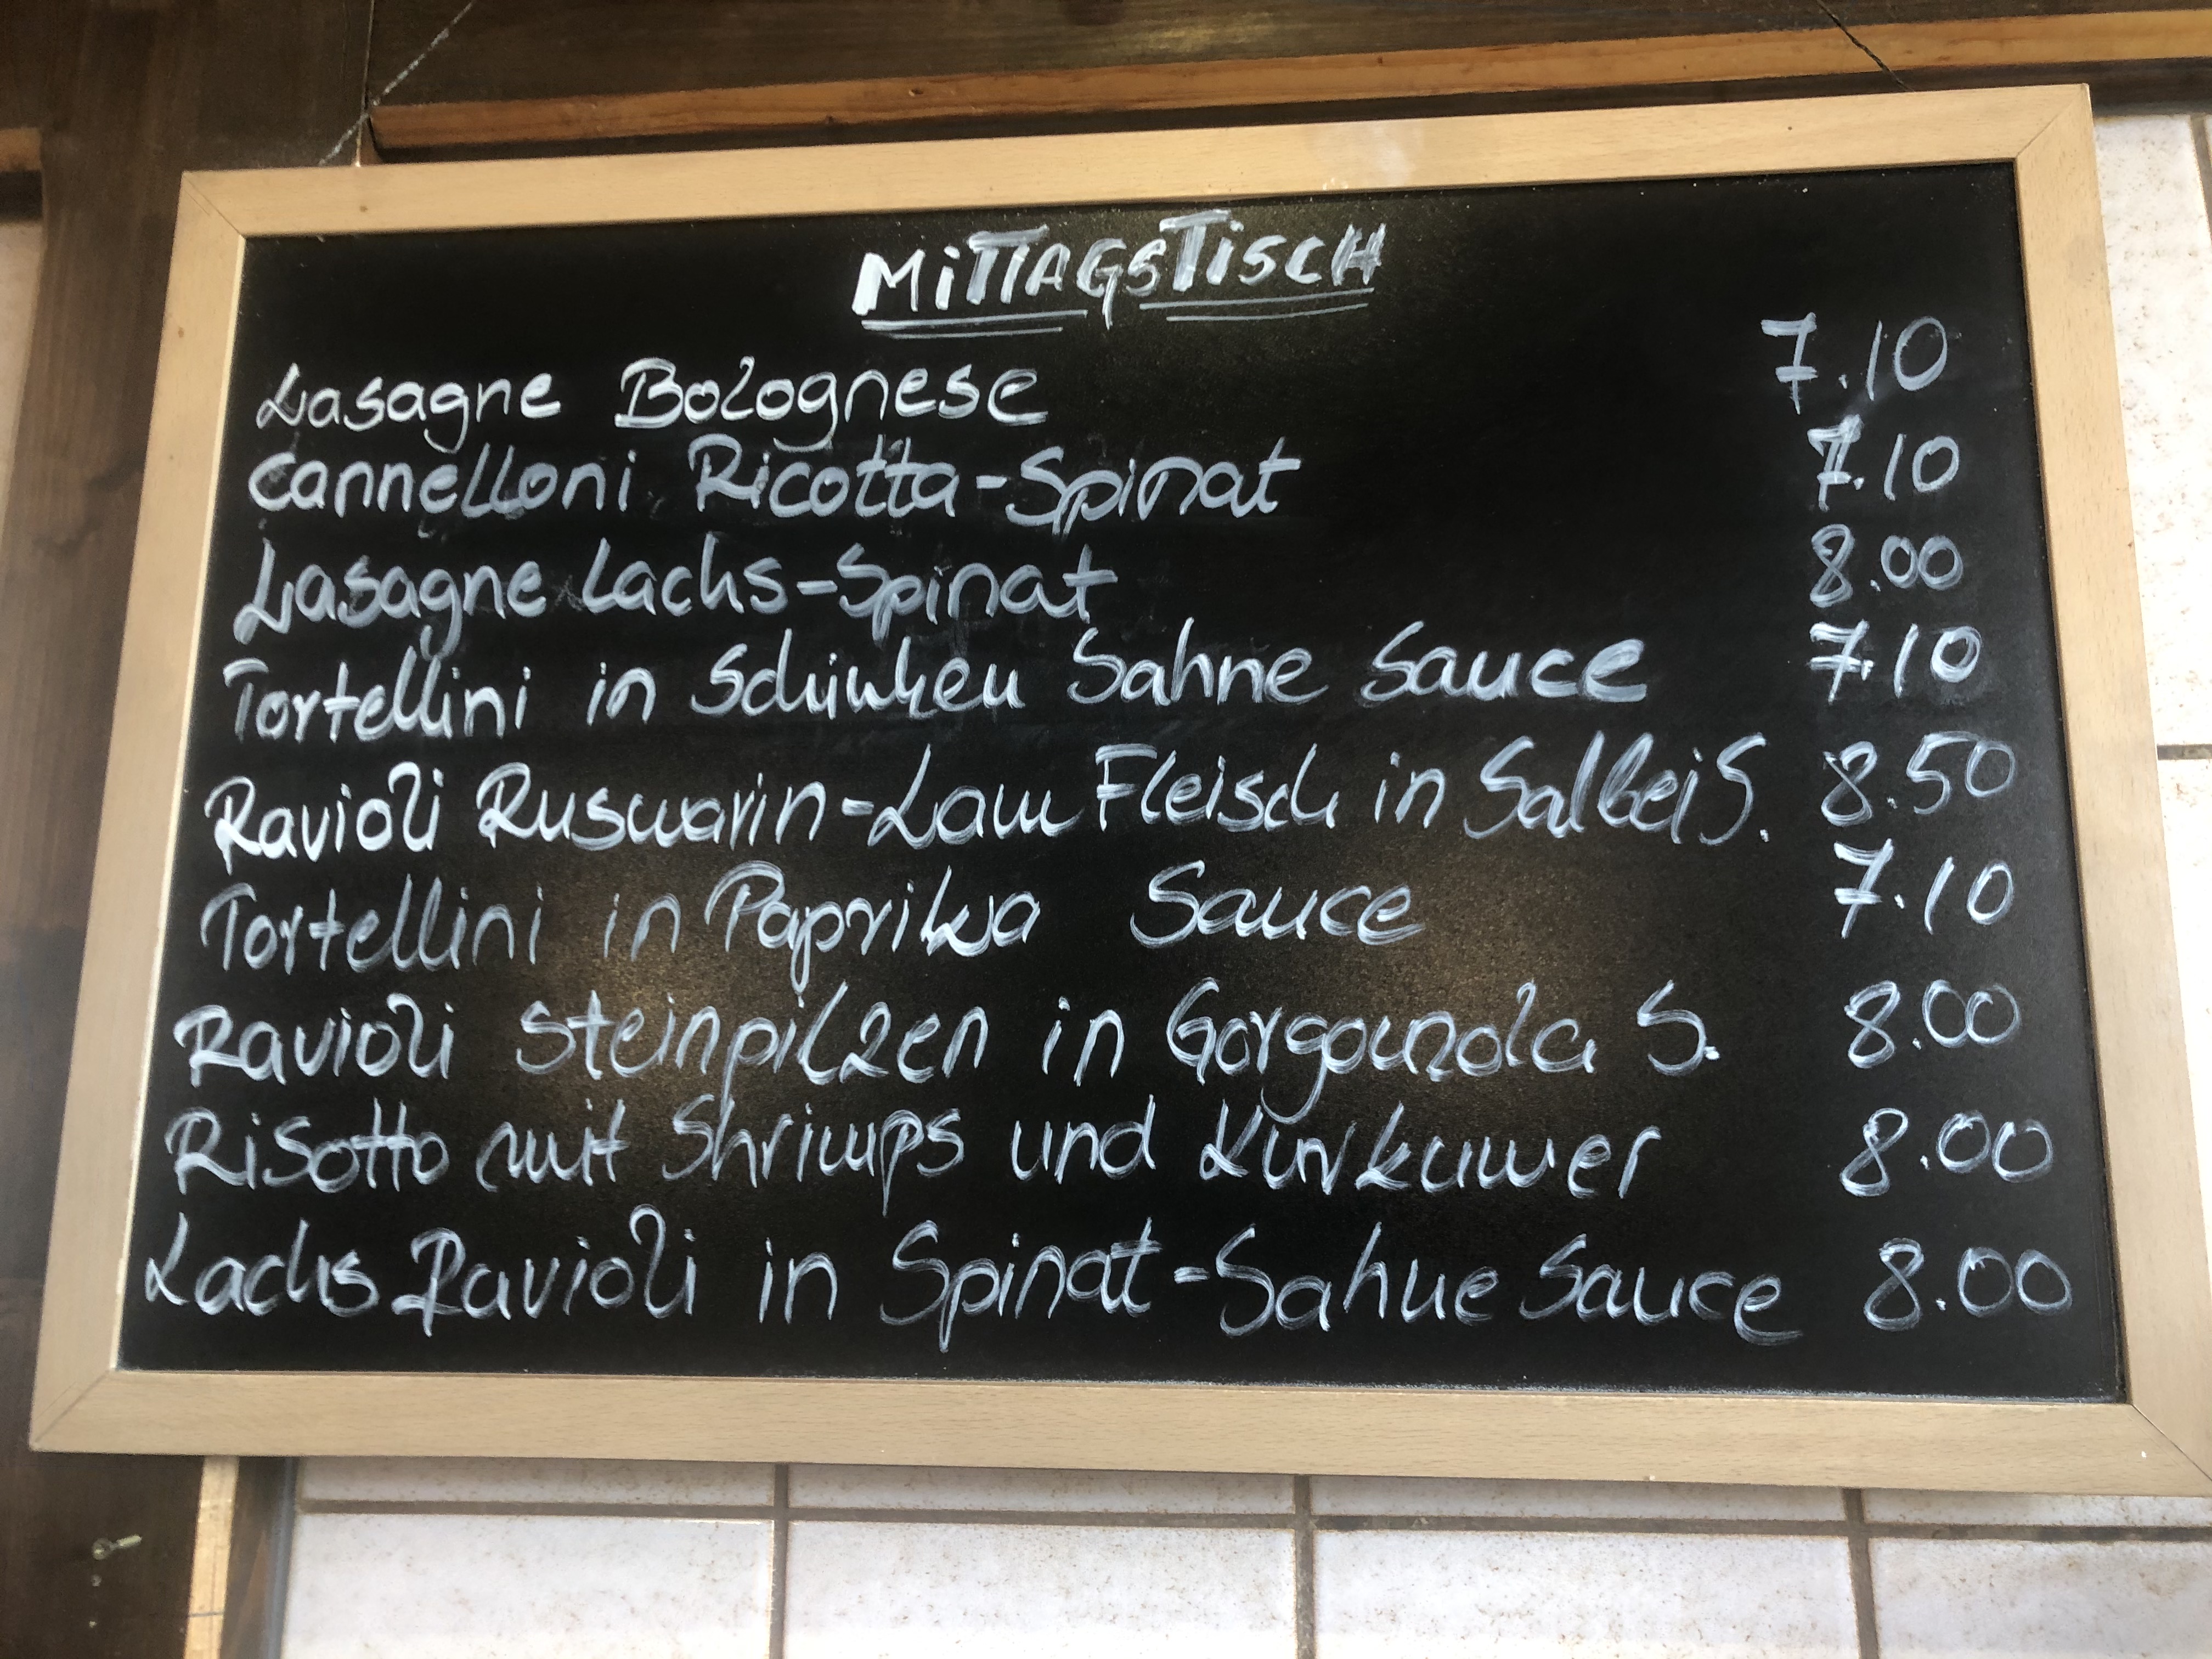 MiTTAGSTiSCH
Lasagne Bolognese 7.10
Cannelloni Ricotta-Spinat 7.10
Lasagne Lachs-Spinat 8.00
Tortellini in Schinken Sahne Sauce 7.10
Ravioli Rusmarin-Lam Fleisch in Salbei S. 8.50
Tortellini in Paprika Sauce 7.10
Ravioli Steinpilzen in Gorgounzola S. 8.00
RiSotto mit Shrimps und Kurkumer 8.00
Lachs Ravioli in Spinat-Sahne Sauce 8.00